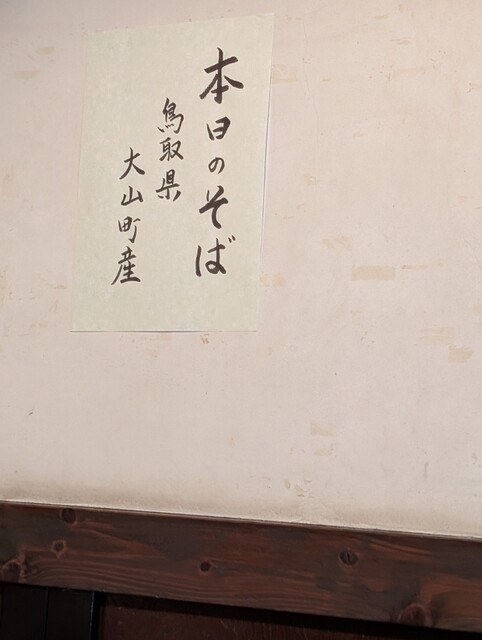 本日のそば
鳥取県
大山町産